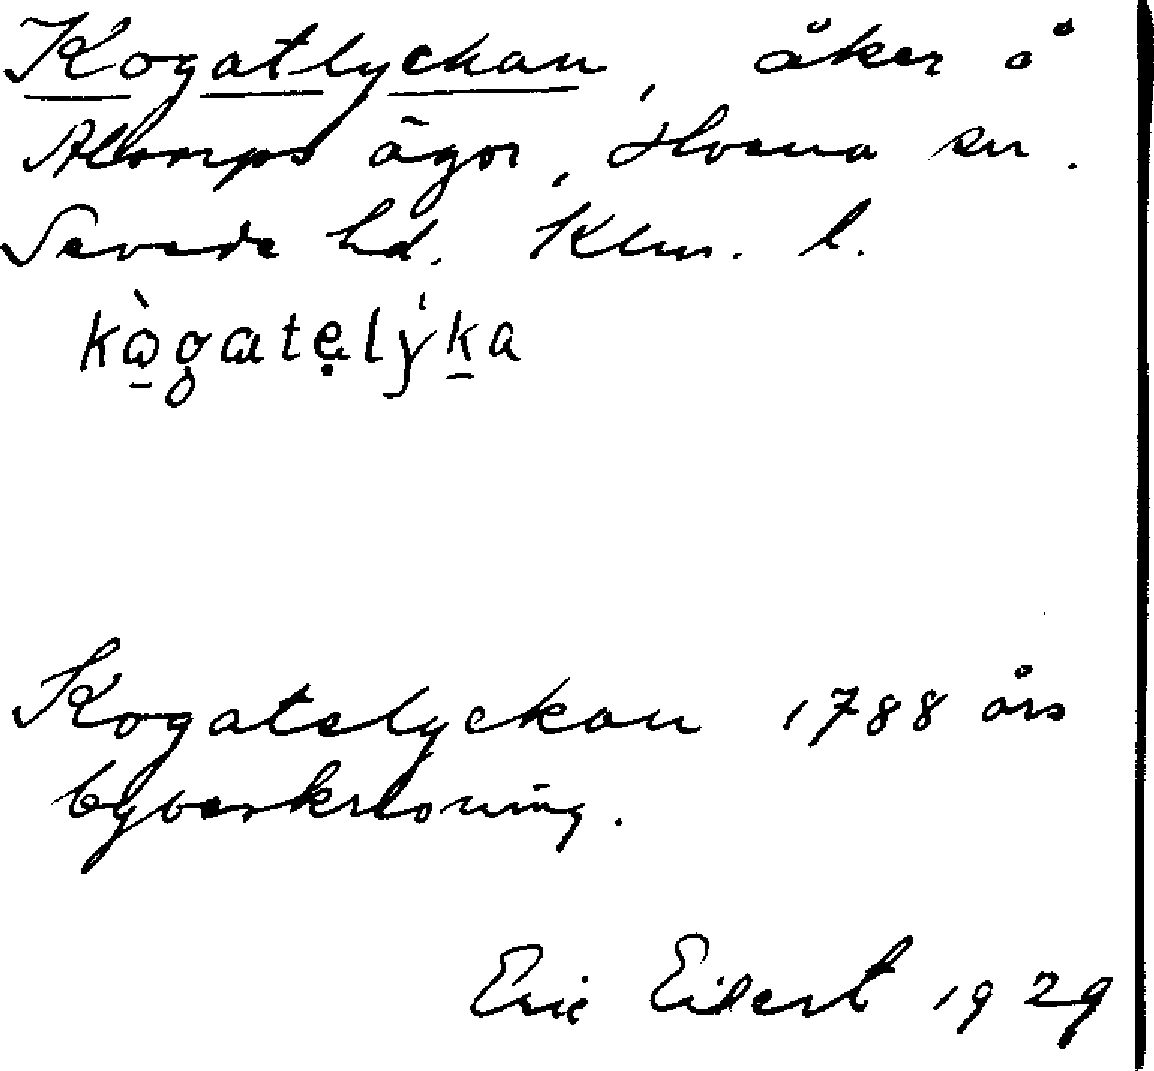 Kogatlyckan, åker å
Alarps ägor, Hvena sn.
Sevede hd. Klm. l.
kògatẹlýka
Kogatelyckan 1788 års
bybeskrivning.
Eric Eidert 1929